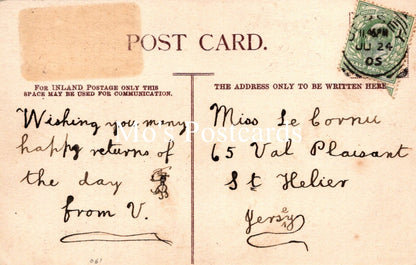 POST CARD.
FOR INLAND POSTAGE ONLY THIS
SPACE MAY BE USED FOR COMMUNICATION.
Wishing you many
happy returns of
the day
from V.
061
THE ADDRESS ONLY TO BE WRITTEN HERE
Miss Le Cornu
65 Val Plaisant
St Helier
Jersey
JU 24
05
Mo's Postcards